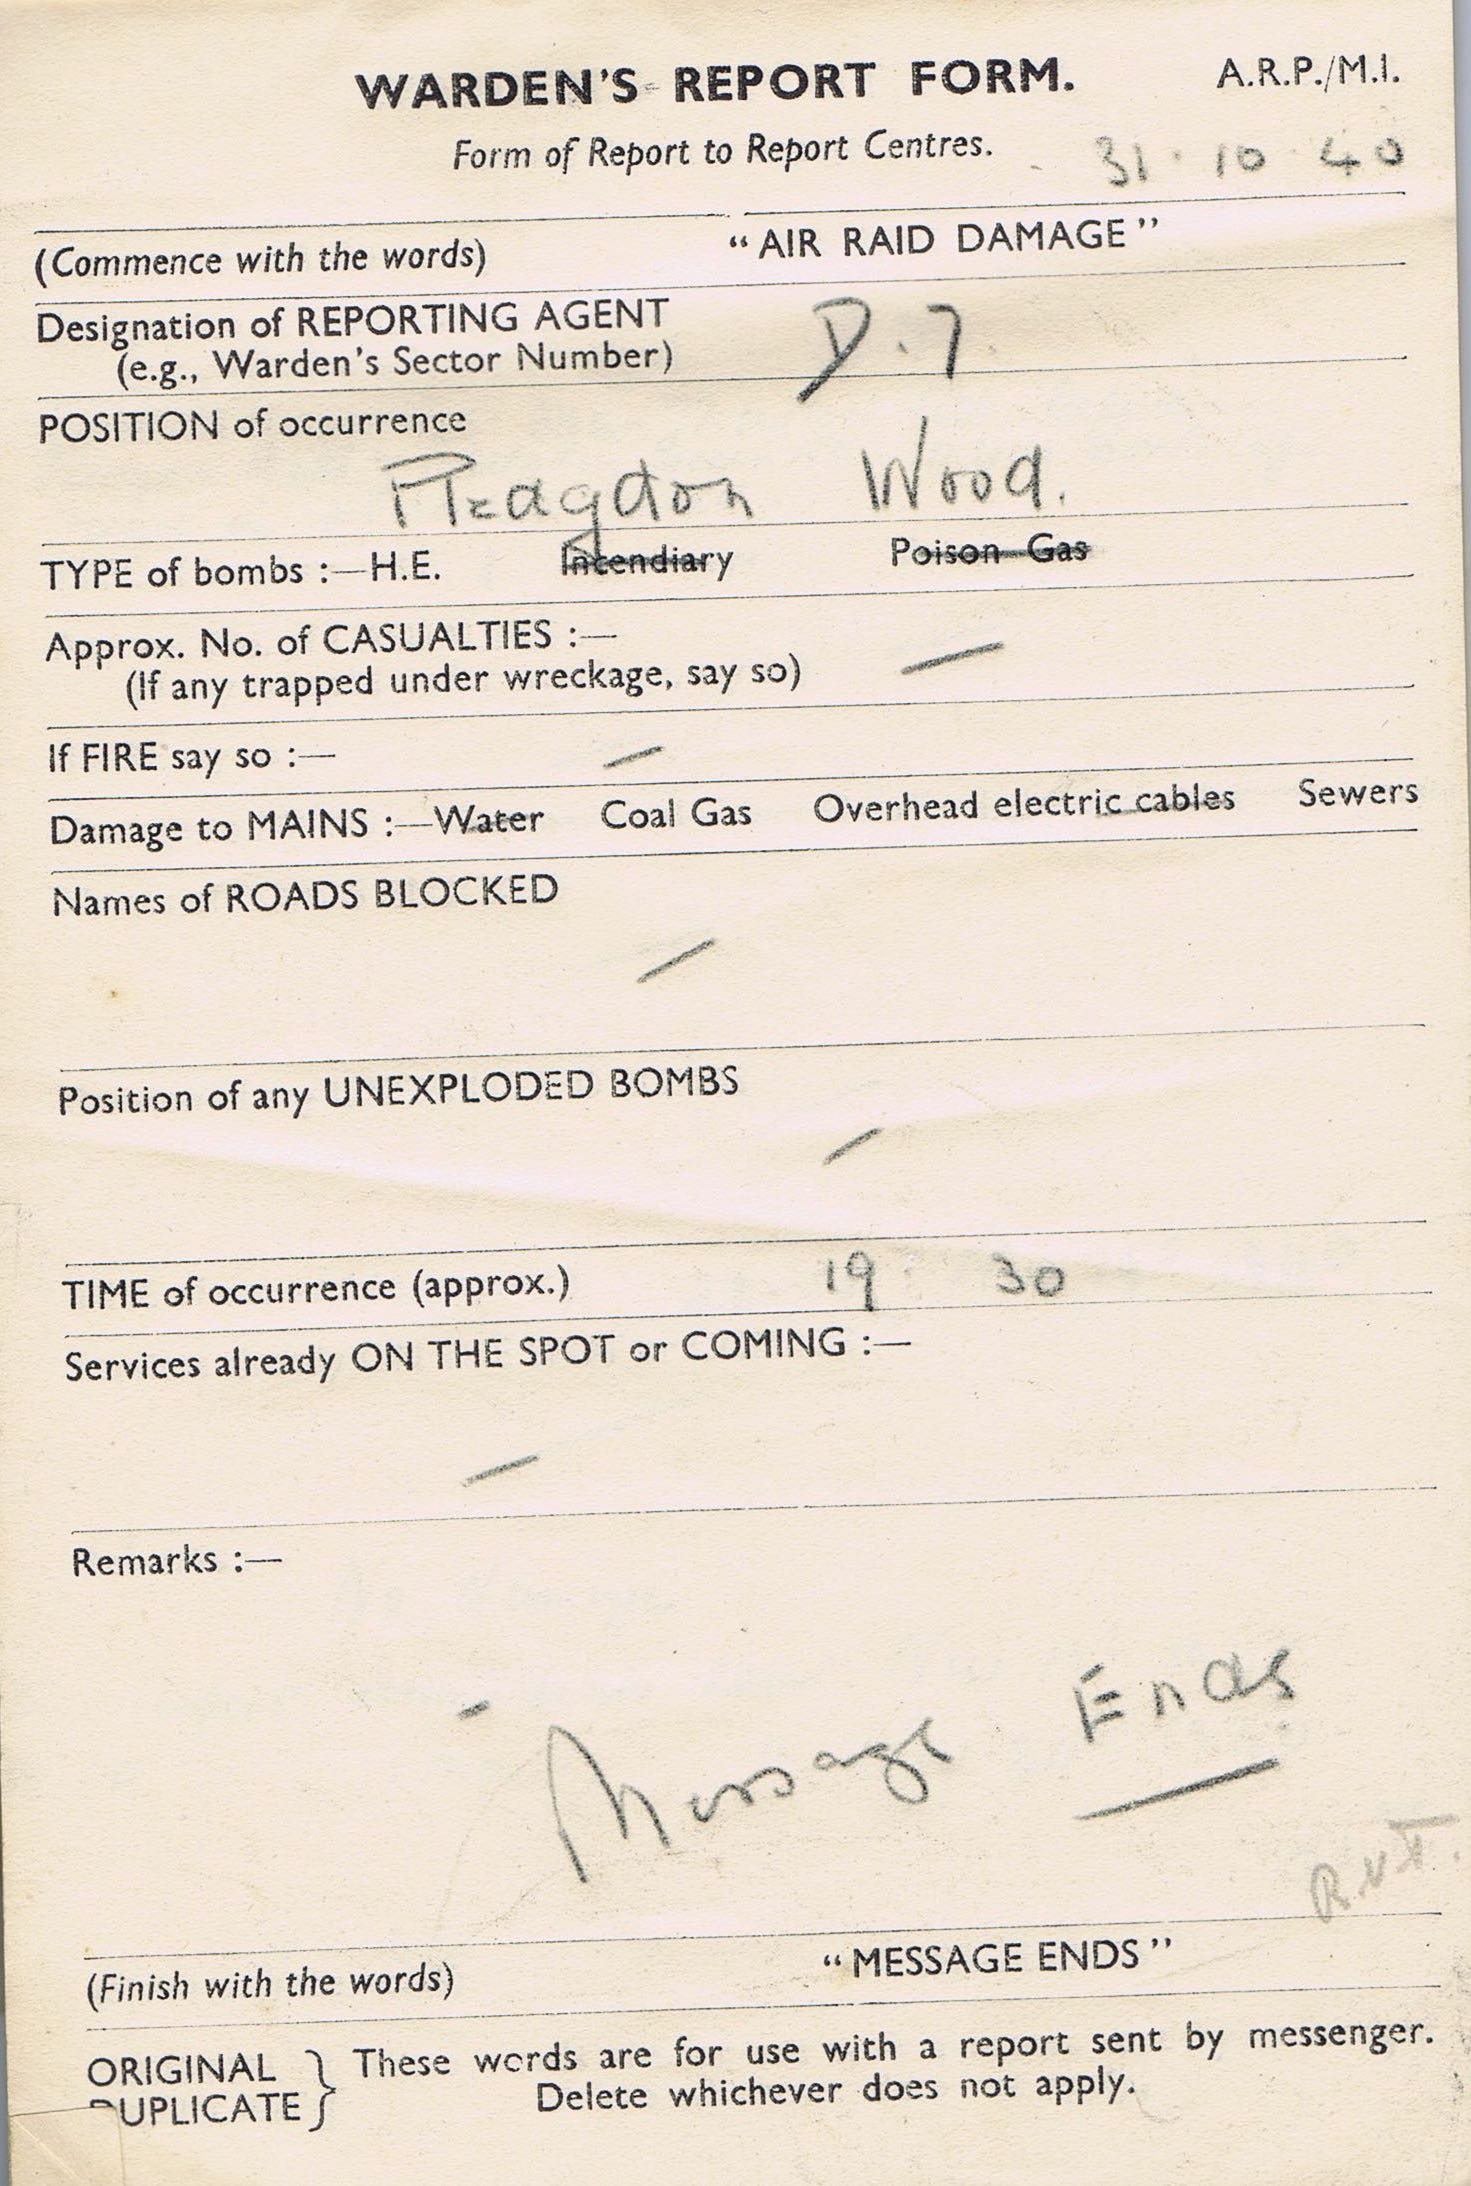 WARDEN'S REPORT FORM. A.R.P./M.I.
Form of Report to Report Centres. 31 · 10 · 40
(Commence with the words) "AIR RAID DAMAGE"
Designation of REPORTING AGENT D.7.
(e.g., Warden's Sector Number)
POSITION of occurrence
Pledgdon Wood.
TYPE of bombs :—H.E. Incendiary Poison Gas
Approx. No. of CASUALTIES :—
(If any trapped under wreckage, say so) —
If FIRE say so :— —
Damage to MAINS :—Water Coal Gas Overhead electric cables Sewers
Names of ROADS BLOCKED
—
Position of any UNEXPLODED BOMBS
—
TIME of occurrence (approx.) 19 30
Services already ON THE SPOT or COMING :—
—
Remarks :—
- Message Ends
(Finish with the words) "MESSAGE ENDS"
ORIGINAL } These words are for use with a report sent by messenger.
DUPLICATE } Delete whichever does not apply.